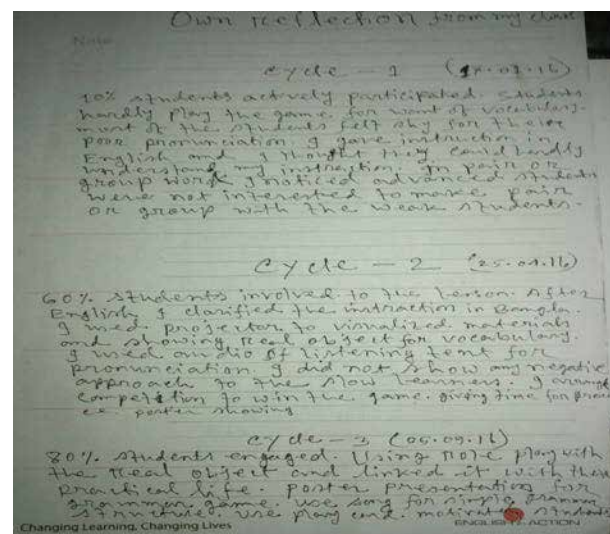 Own reflection from my class
Note
cycle - 1 (18.07.16)
10% students actively participated. students
hardly play the game for want of vocabulary.
most of the students felt shy for their
poor pronunciation. I gave instruction in
English and I thought they could hardly
understand my instruction. In pair or
group work I noticed advanced students
were not interested to make pair
or group with the weak students.
cycle - 2 (25.07.16)
60% students involved to the lesson. After
English I clarified the instraction in Bangla.
I used projector to visualized materials
and showing real object for vocabulary.
I used audio of listening text for
pronunciation. I did not show any negative
approach to the slow learners. I arrange
competition to win the game. giving time for
poster showing
cycle - 3 (06.09.16)
80% students engaged. Using role play with
the real object and linked it with their
practical life. poster presentation for
grammar game. use song for simple grammar
structure. use play card. motivated students
Changing Learning, Changing Lives
ENGLISH ACTION